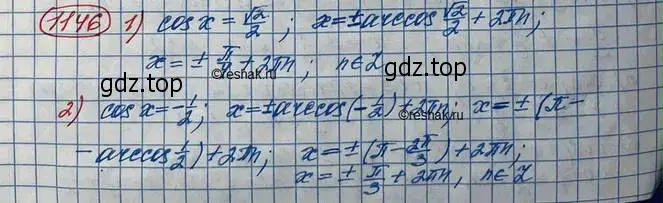 1146 1) cos x = √2/2 ; x = ± arccos √2/2 + 2πn ;
x = ± π/4 + 2πn ; n ∈ Z
gdz.top ©reshak.ru gdz.top
2) cos x = -1/2 ; x = ± arccos(-1/2) + 2πn ; x = ± (π -
©reshak.ru
- arccos 1/2) + 2πn ; x = ± (π - 2π/3) + 2πn ;
gdz.top
x = ± π/3 + 2πn, n ∈ Z